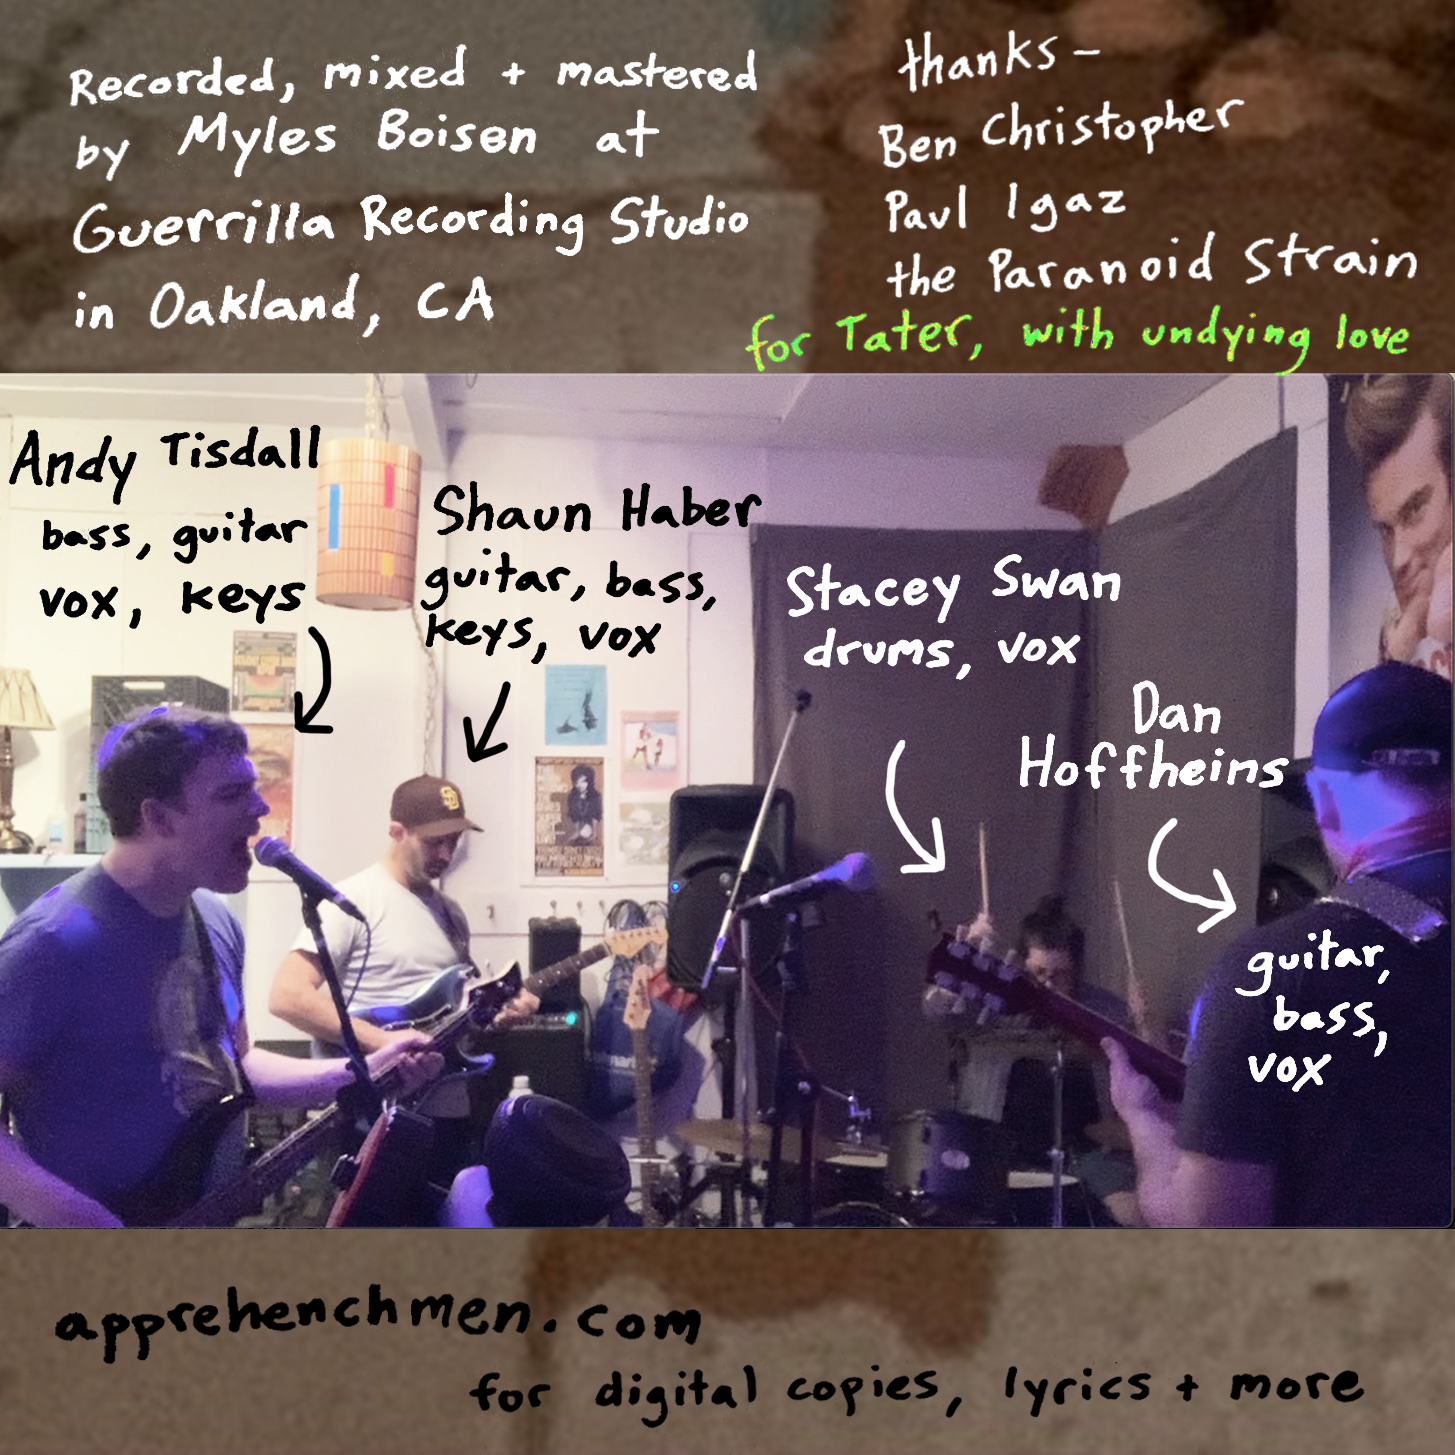 Recorded, mixed + mastered
by Myles Boisen at
Guerrilla Recording Studio
in Oakland, CA
thanks –
Ben Christopher
Paul Igaz
the Paranoid Strain
for Tater, with undying love
Andy Tisdall
bass, guitar
vox, keys
Shaun Haber
guitar, bass,
keys, vox
Stacey Swan
drums, vox
Dan
Hoffheins
guitar,
bass,
vox
SD
apprehenchmen.com
for digital copies, lyrics + more